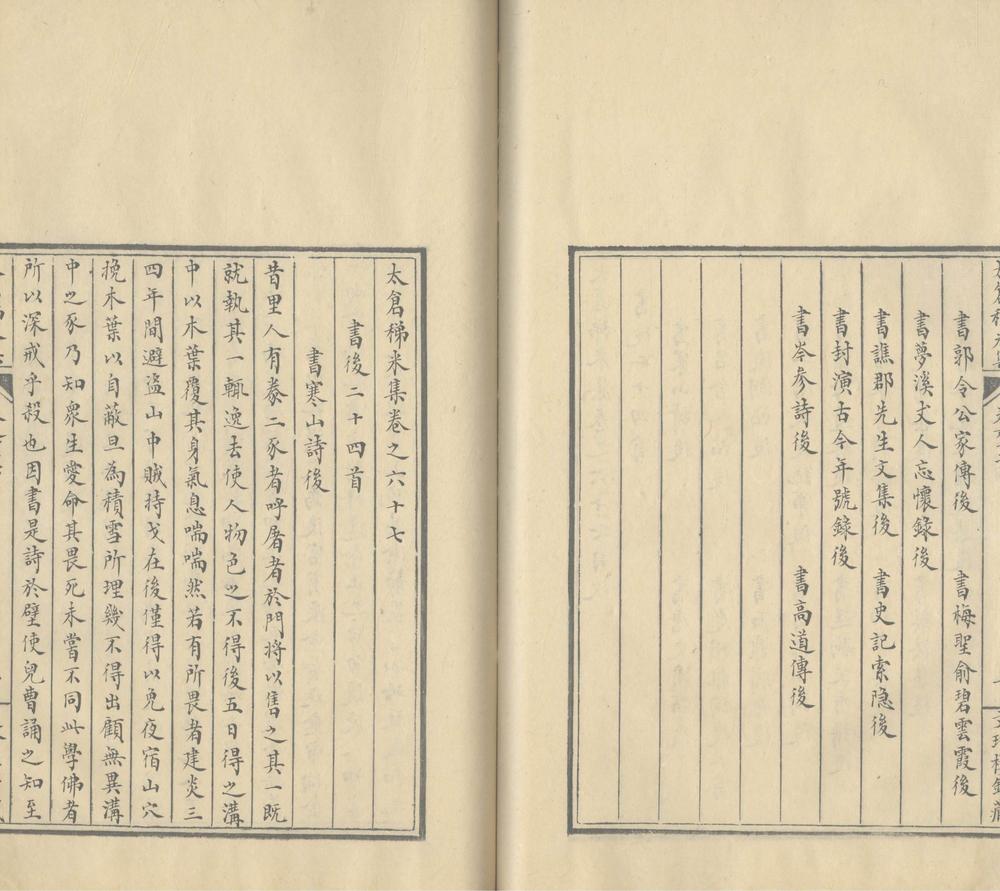 書郭令公家傳後　書梅聖俞碧雲霞後
書夢溪丈人忘懷錄後
書譙郡先生文集後　書史記索隐後
書封演古今年號錄後
書岑參詩後　書高道傳後
太倉稊米集卷之六十七
書後二十四首
書寒山詩後
昔里人有豢二豕者呼屠者於門將以售之其一既
就執其一輒逸去使人物色之不得後五日得之溝
中以木葉覆其身氣息喘喘然若有所畏者建炎三
四年間避盜山中賊持戈在後僅得以免夜宿山穴
挽木葉以自蔽旦為積雪所理幾不得出顧無異溝
中之豕乃知衆生愛命其畏死未嘗不同此學佛者
所以深戒乎殺也因書是詩於壁使兒曹誦之知至